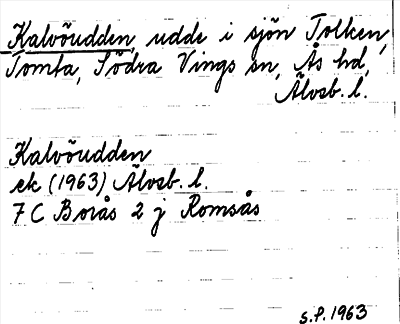 Kalvöudden, udde i sjön Tolken,
Tomta, Södra Vings sn, Ås hd,
Älvsb. l.
Kalvöudden
ek (1963) Älvsb. l.
7 C Borås 2 j Romsås
S.P. 1963